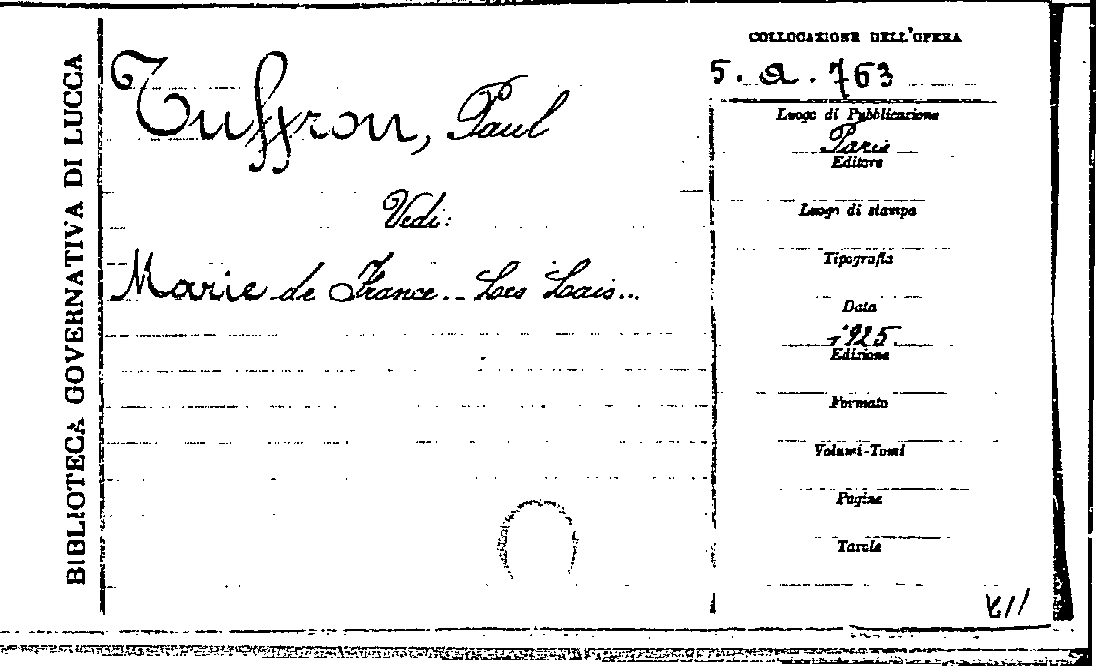 BIBLIOTECA GOVERNATIVA DI LUCCA
COLLOCAZIONE DELL'OPERA
5. a. 763
Tuffron, Paul
Vedi:
Marie de France.. Les Lais...
Luogo di Pubblicazione
Paris
Editore
Luogo di stampa
Tipografia
Data
1925.
Edizione
Formato
Volumi-Tomi
Pagine
Tavole